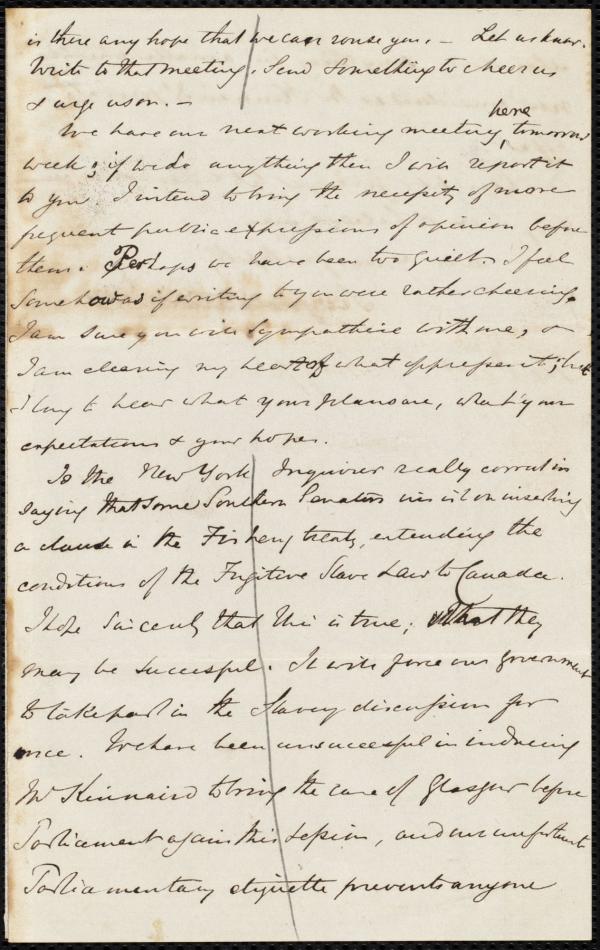 is there any hope that we can rouse you. — Let us know.
Write to that meeting. Send something to cheer us
& urge us on. —
here
We have our next working meeting, tomorrow
week; if we do anything then I will report it
to you. I intend to bring the necessity of more
frequent public expressions of opinion before
them. Perhaps we have been too quiet. I feel
somehow as if writing to you were rather cheering.
I am sure you will sympathise with me, &
I am clearing my heart of what oppresses it; but
I long to hear what your plans are, what your
expectations & your hopes.
Is the New York Inquirer really correct in
saying that some Southern Senators insist on inserting
a clause in the Fishery treaty, extending the
conditions of the Fugitive Slave Law to Canada.
I hope sincerely that this is true; & that they
may be successful. It will force our government
to take part in the Slavery discussion for
once. We have been unsuccessful in inducing
Mr Kinnaird to bring the case of Glasgow before
Parliament again this session, and our unfortunate
Parliamentary etiquette prevents anyone